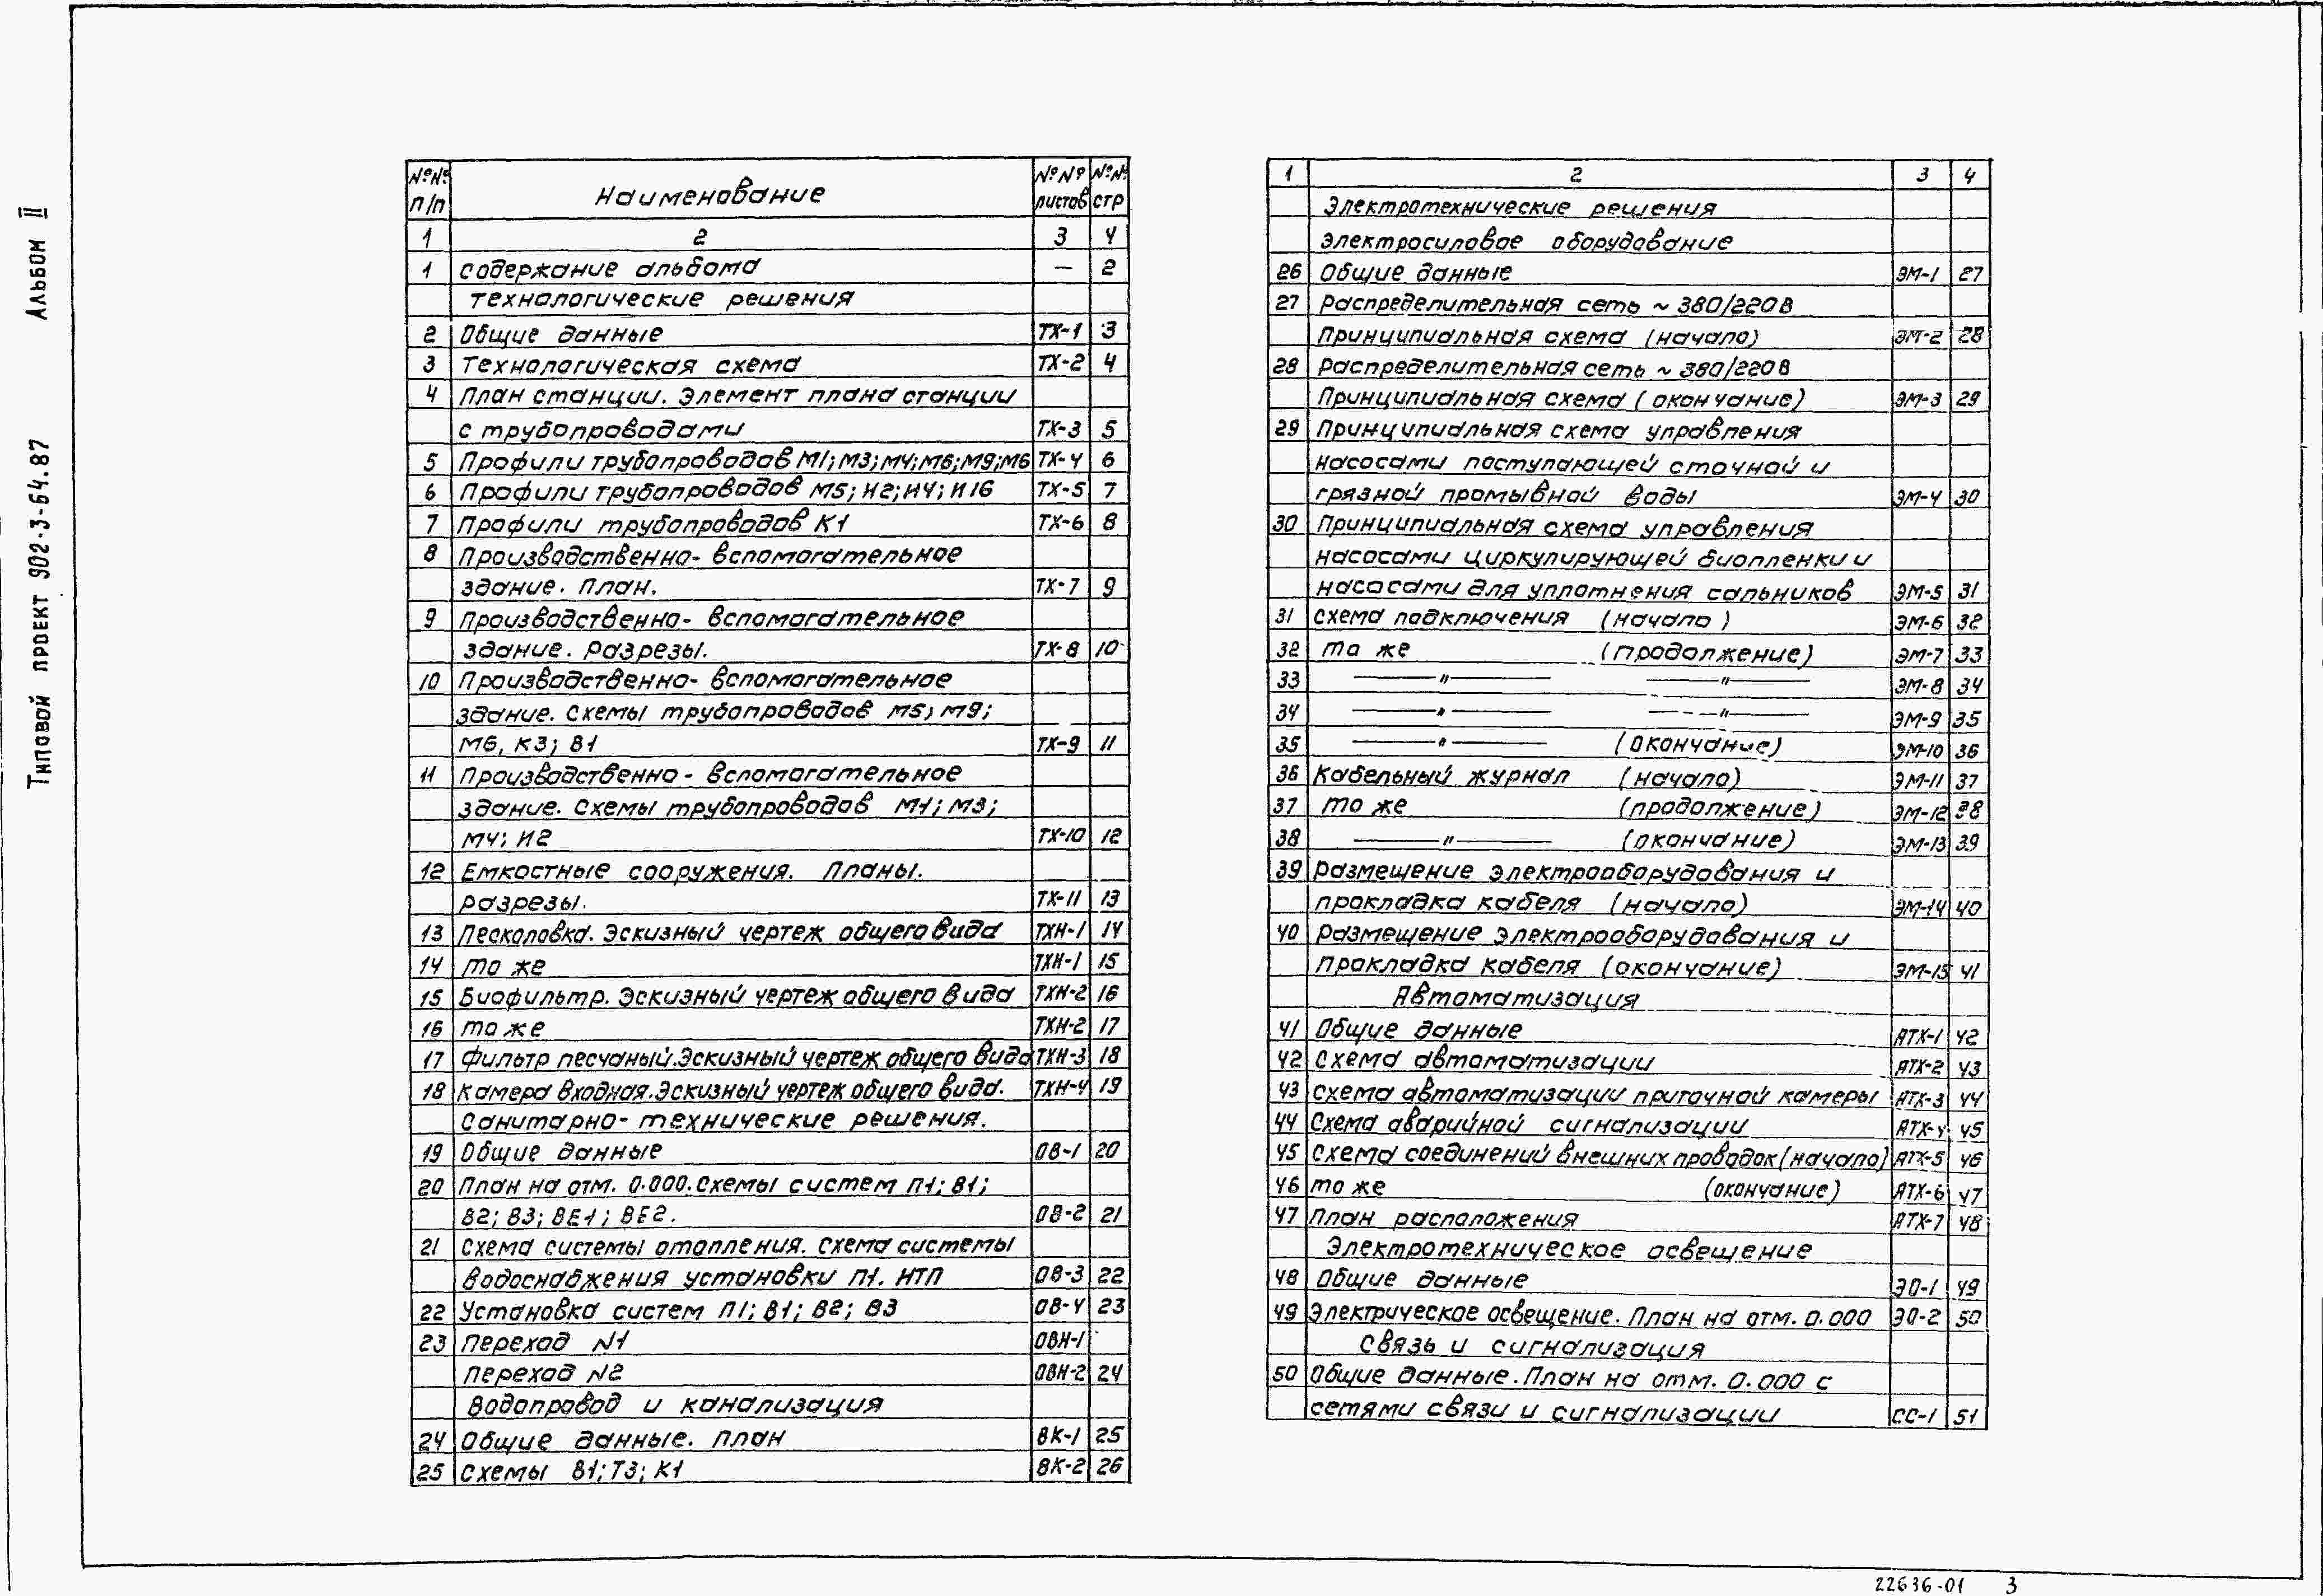 Типовой проект 902-3-64.87 Альбом II
№№ п/п Наименование №№ листов №№ стр
1 2 3 4
1 содержание альбома — 2
технологические решения
2 Общие данные ТХ-1 3
3 Технологическая схема ТХ-2 4
4 План станции. Элемент плана станции
с трубопроводами ТХ-3 5
5 Профили трубопроводов М1; М3; М4; М6; М9; М6 ТХ-4 6
6 Профили трубопроводов М5; И2; И4; И16 ТХ-5 7
7 Профили трубопроводов К1 ТХ-6 8
8 Производственно- вспомогательное
здание. План. ТХ-7 9
9 Производственно- вспомогательное
здание. Разрезы. ТХ-8 10
10 Производственно- вспомогательное
здание. Схемы трубопроводов М5; М9;
М6, К3; В1 ТХ-9 11
11 Производственно- вспомогательное
здание. Схемы трубопроводов М1; М3;
М4; И2 ТХ-10 12
12 Емкостные сооружения. Планы.
Разрезы. ТХ-11 13
13 Песколовка. Эскизный чертеж общего вида ТХН-1 14
14 то же ТХН-1 15
15 Биофильтр. Эскизный чертеж общего вида ТХН-2 16
16 то же ТХН-2 17
17 Фильтр песчаный. Эскизный чертеж общего вида ТХН-3 18
18 Камера входная. Эскизный чертеж общего вида. ТХН-4 19
Санитарно- технические решения.
19 Общие данные ОВ-1 20
20 План на отм. 0.000. Схемы систем П1; В1;
В2; В3; ВЕ1; ВЕ2. ОВ-2 21
21 Схема системы отопления. Схема системы
водоснабжения установки П1. НТП ОВ-3 22
22 Установка систем П1; В1; В2; В3 ОВ-4 23
23 Переход N1 ОВН-1
Переход N2 ОВН-2 24
Водопровод и канализация
24 Общие данные. План ВК-1 25
25 Схемы В1; Т3; К1 ВК-2 26
1 2 3 4
Электротехнические решения
Электросиловое оборудование
26 Общие данные ЭМ-1 27
27 Распределительная сеть ~ 380/220В
Принципиальная схема (начало) ЭМ-2 28
28 Распределительная сеть ~ 380/220В
Принципиальная схема (окончание) ЭМ-3 29
29 Принципиальная схема управления
насосами поступающей сточной и
грязной промывной воды ЭМ-4 30
30 Принципиальная схема управления
насосами циркулирующей биопленки и
насосами для уплотнения сальников ЭМ-5 31
31 Схема подключения (начало) ЭМ-6 32
32 то же (продолжение) ЭМ-7 33
33 —"— —"— ЭМ-8 34
34 —"— —"— ЭМ-9 35
35 —"— (окончание) ЭМ-10 36
36 Кабельный журнал (начало) ЭМ-11 37
37 то же (продолжение) ЭМ-12 38
38 —"— (окончание) ЭМ-13 39
39 Размещение электрооборудования и
прокладка кабеля (начало) ЭМ-14 40
40 Размещение электрооборудования и
прокладка кабеля (окончание) ЭМ-15 41
Автоматизация
41 Общие данные АТХ-1 42
42 Схема автоматизации АТХ-2 43
43 Схема автоматизации приточной камеры АТХ-3 44
44 Схема аварийной сигнализации АТХ-4 45
45 Схема соединений внешних проводок (начало) АТХ-5 46
46 то же (окончание) АТХ-6 47
47 План расположения АТХ-7 48
Электротехническое освещение
48 Общие данные ЭО-1 49
49 Электрическое освещение. План на отм. 0.000 ЭО-2 50
Связь и сигнализация
50 Общие данные. План на отм. 0.000 с
сетями связи и сигнализации СС-1 51
22636-01 3